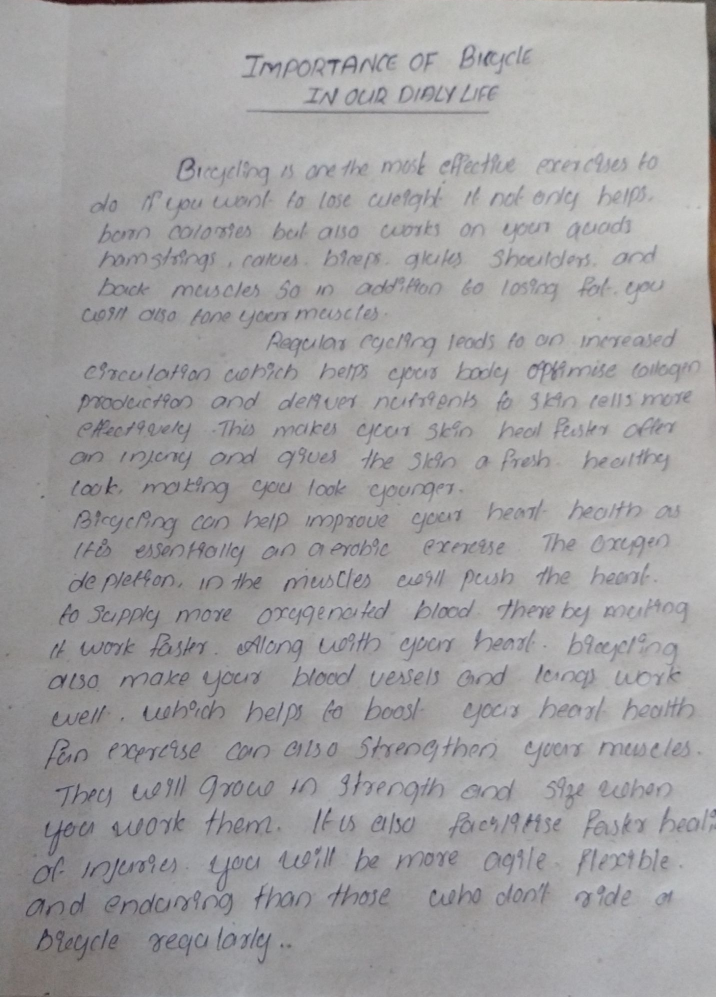 IMPORTANCE OF Bicycle
IN OUR DIALY LIFE
Bicycling is one the most effective exercises to
do if you want to lose weight it not only helps.
born calories but also works on your quads
hamstrings, calves. biceps. glutes shoulders. and
back muscles So in addition to losing fat. you
will also tone your muscles.
Regular cycling leads to an increased
circulation which helps your body optimise collagen
production and deliver nutrients to skin cells more
effectively. This makes your skin heal faster after
an injury and gives the skin a fresh healthy
look, making you look younger.
Bicycling can help improve your heart health as
it is essentially an aerobic exercise The oxygen
depletion, in the muscles will push the heart.
to supply more oxygenated blood. there by making
it work faster. Along with your heart. bicycling
also make your blood vessels and lungs work
well. which helps to boost your heart health
fun exercise can also strengthen your muscles.
They will grow in strength and size when
you work them. It is also facilitise faster heal
of injuries. you will be more agile. flexible.
and enduring than those who don't ride a
bicycle regularly..